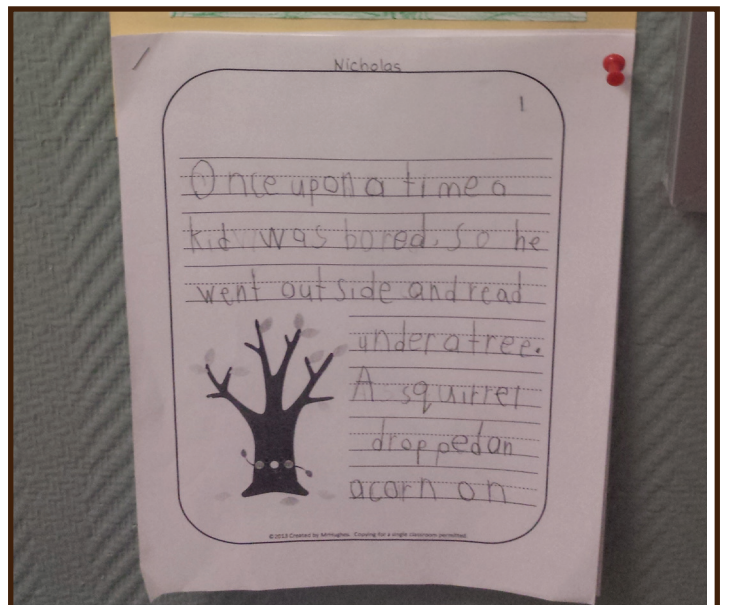 Nicholas
1
Once upon a time a
kid was bored. So he
went outside and read
under a tree.
A squirrel
dropped an
acorn on
©2013 Created by MrHughes. Copying for a single classroom permitted.